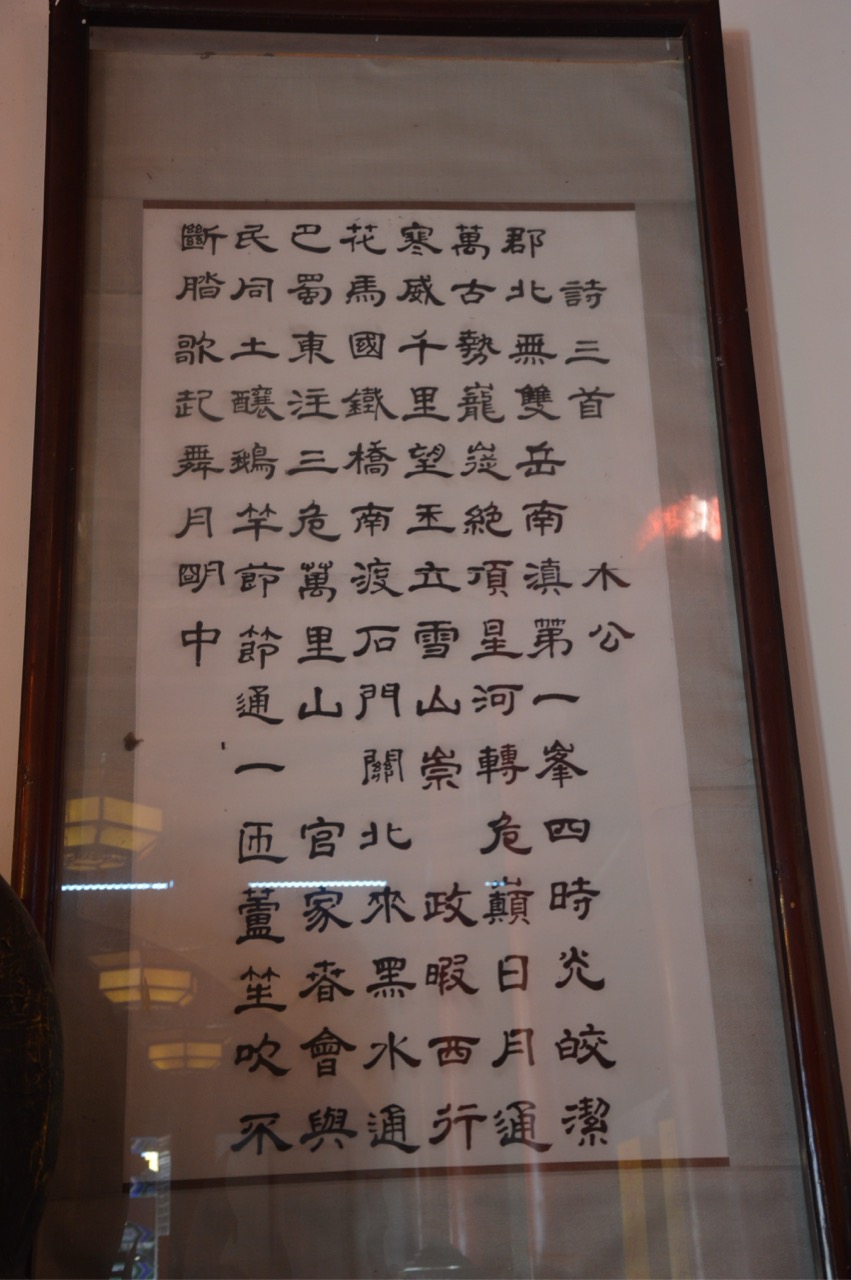 詩三首 木公
郡北無雙岳南滇第一峯四時光皎潔
萬古勢巃嵸絕頂星河轉危巔日月通
寒威千里望玉立雪山崇 政暇西行
花馬國鐵橋南渡石門關 北來黑水通
巴蜀東注三危萬里山 官家春會與
民同土釀鵝竿節節通一匝蘆笙吹不
斷踏歌起舞月明中